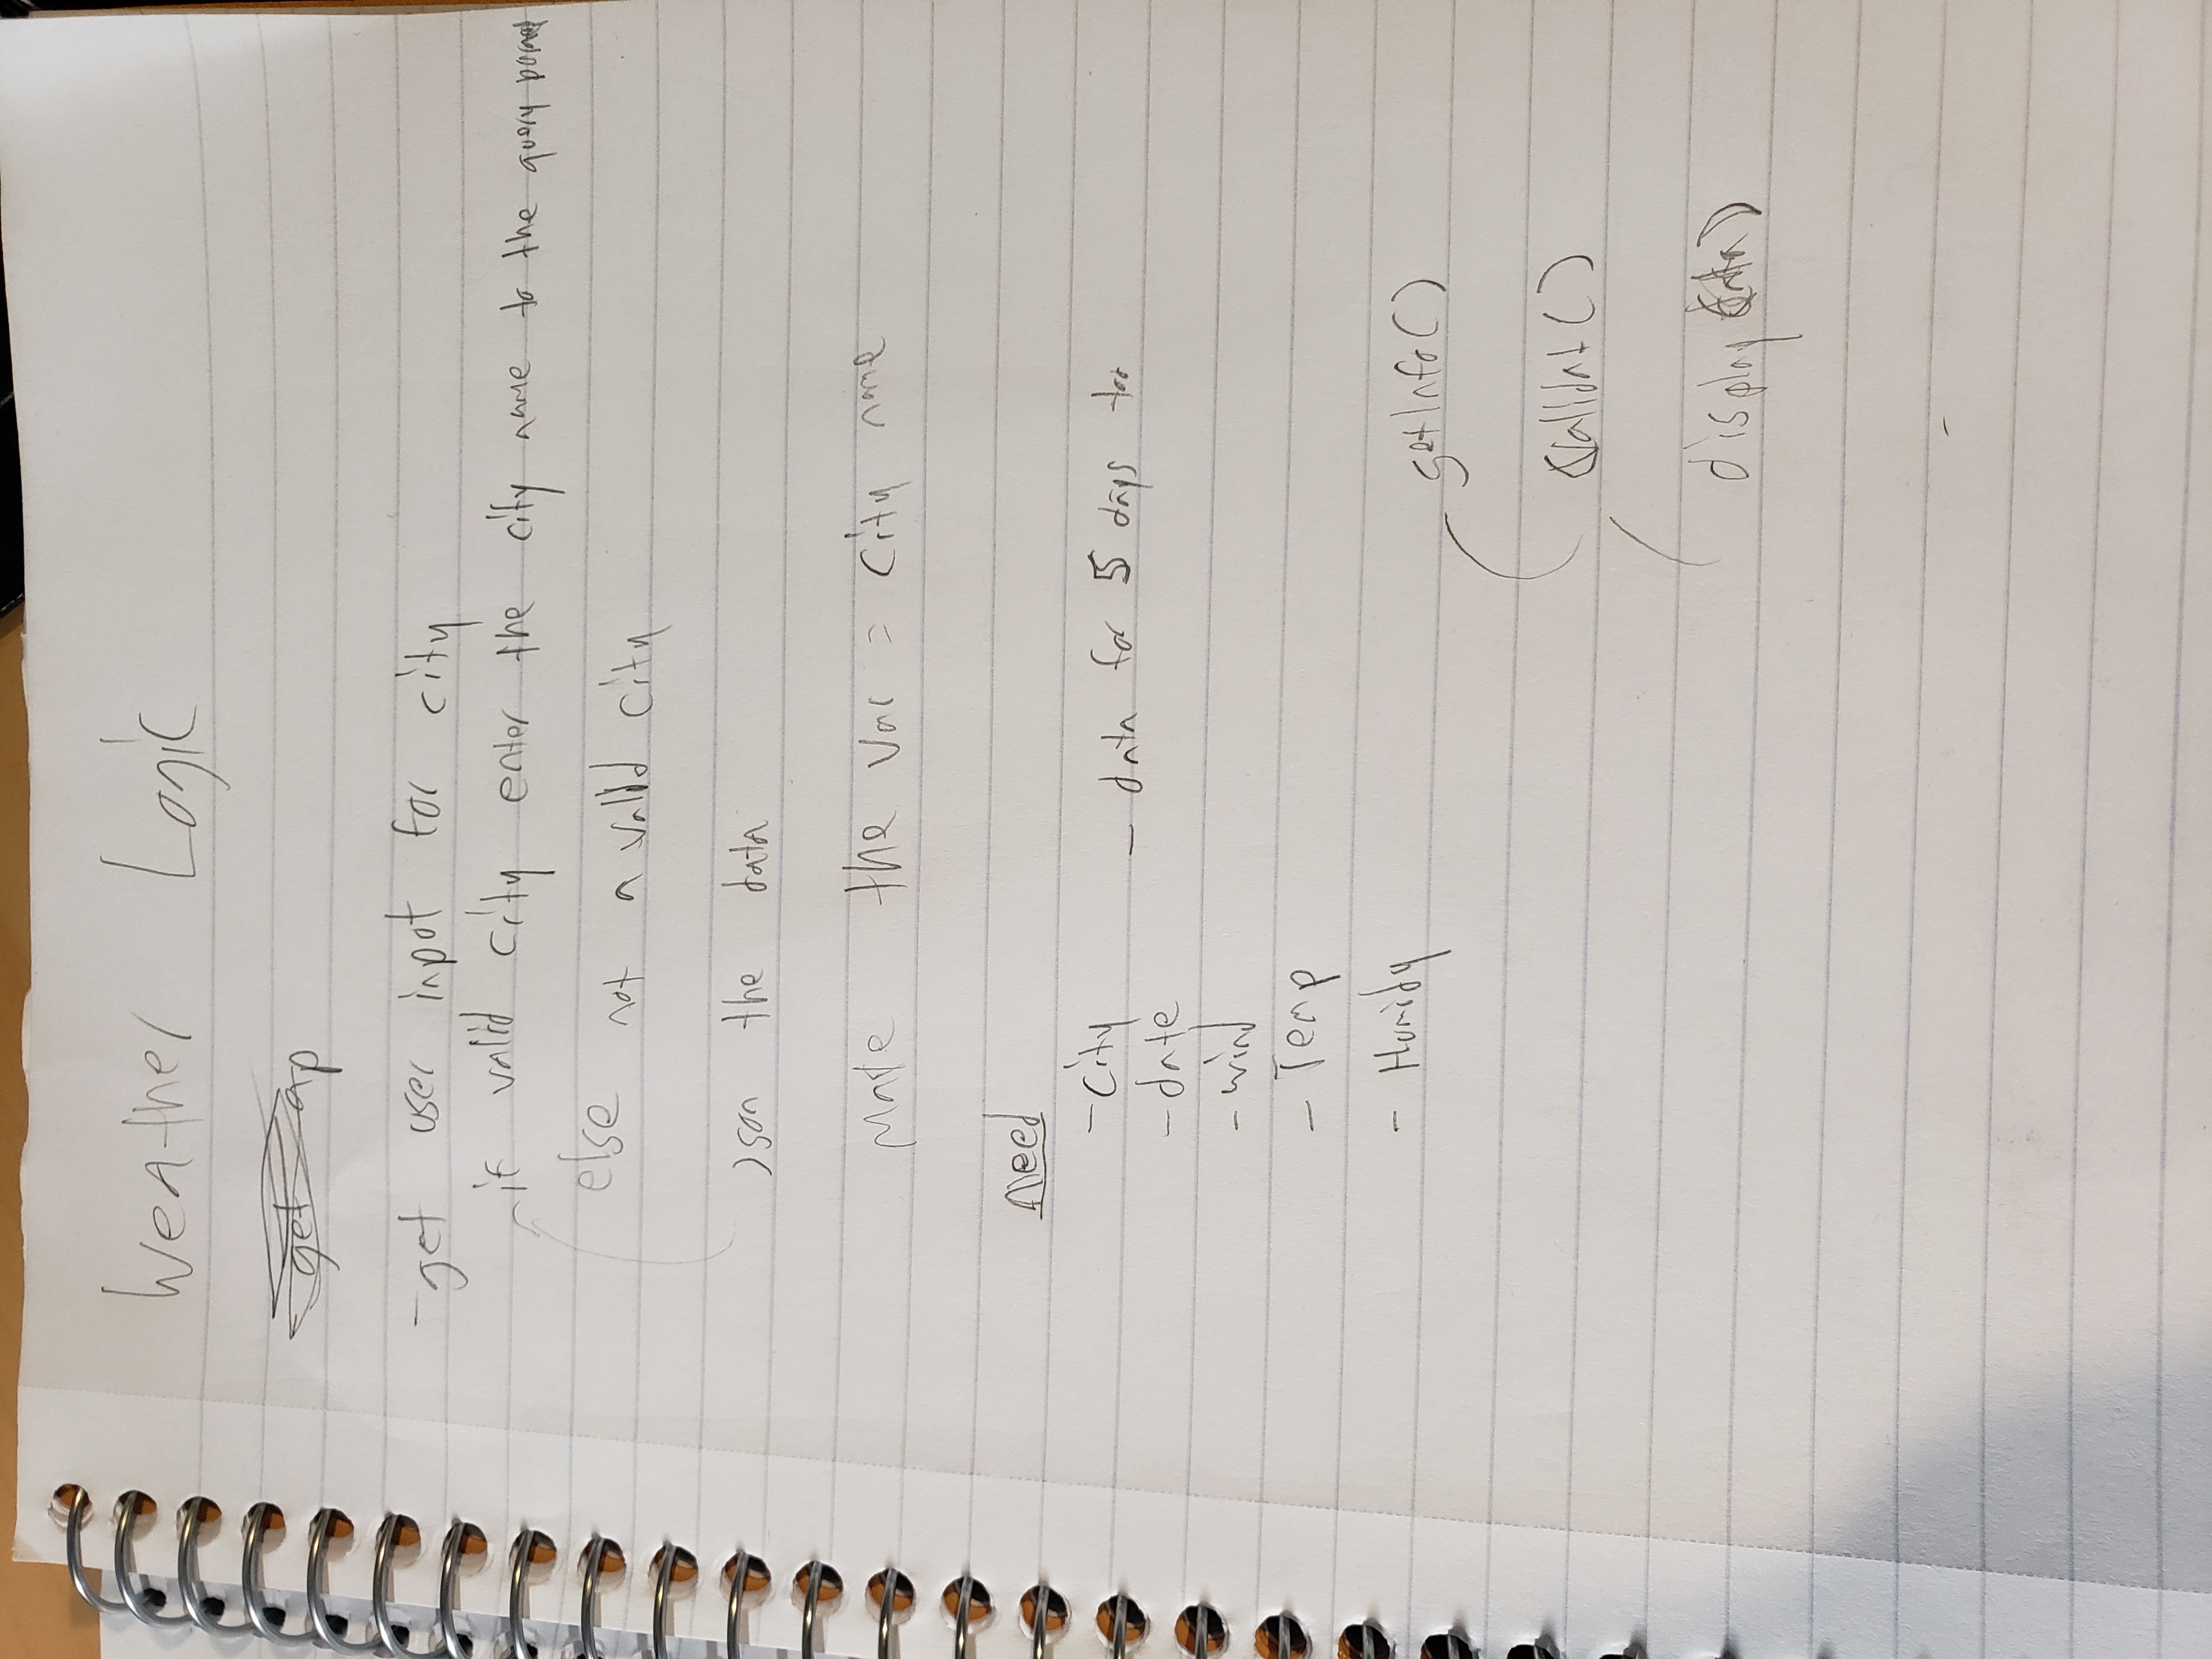 Weather Logic
get ap
- get user input for city
if valid city enter the city name to the query param
else not a valid city
json the data
Make the var = city name
Need
- City - data for 5 days too
- date
- wind
- Temp
- Humidy
getInfo()
Validat()
display()